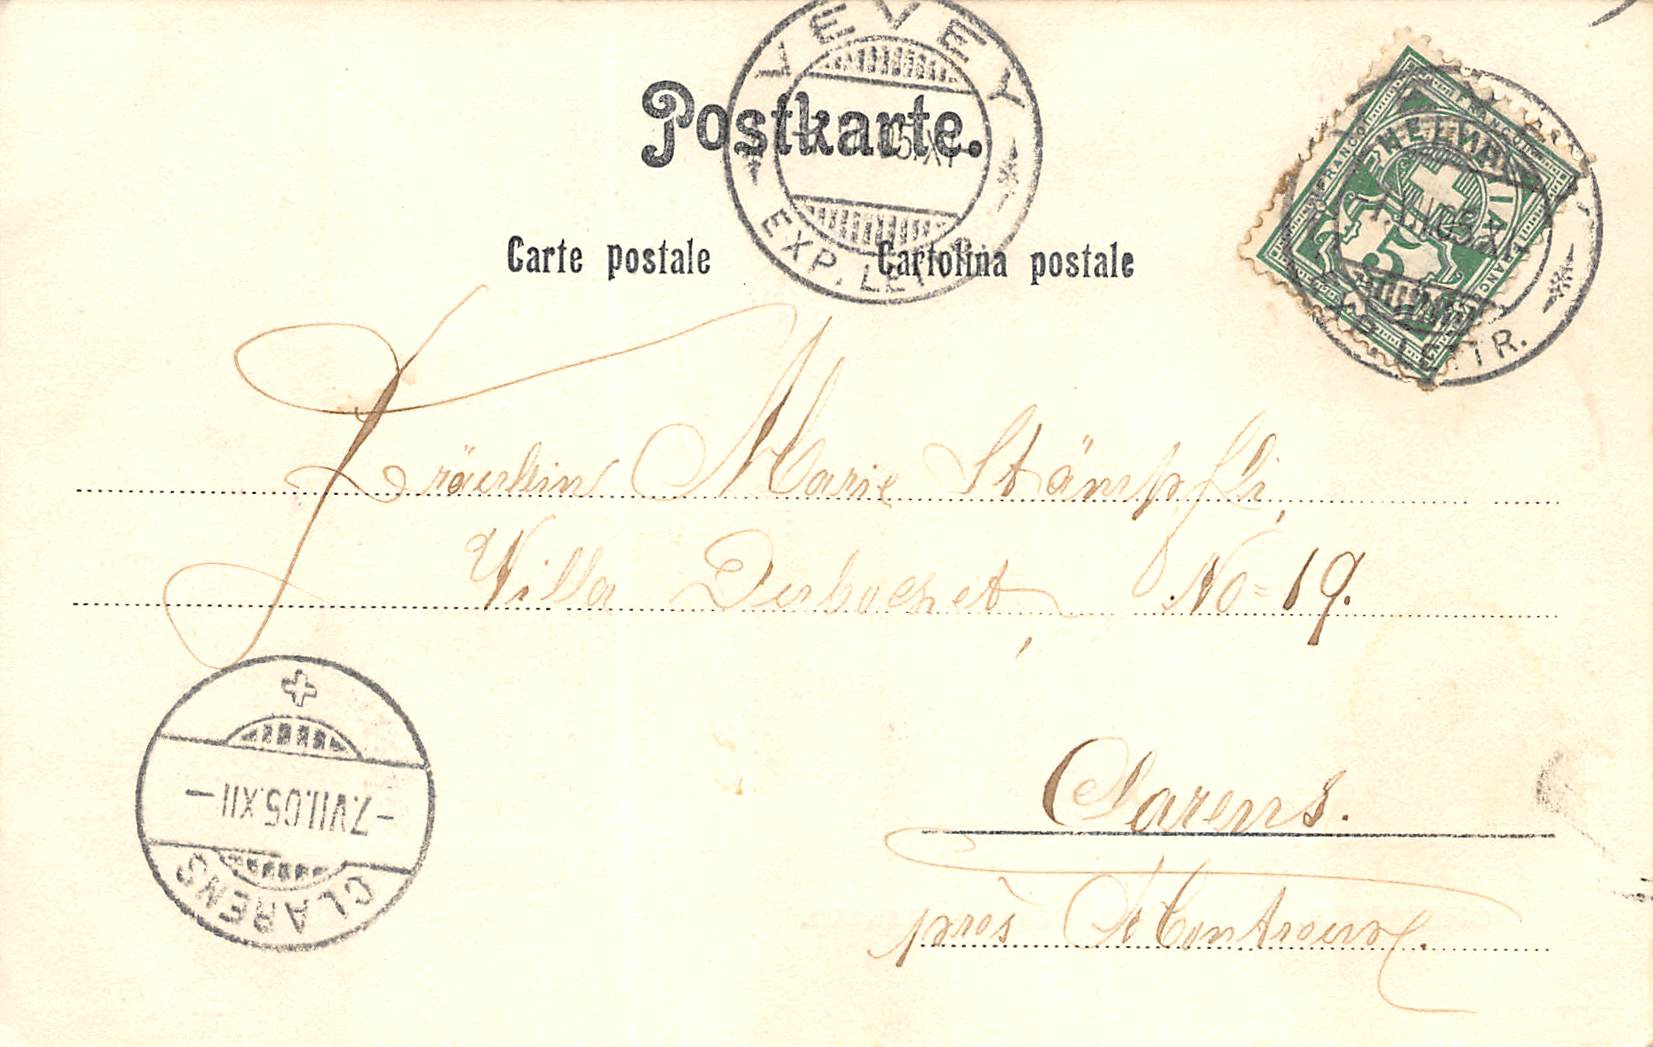 VEVEY
EXP. LETTR.
Postkarte.
Carte postale
Cartolina postale
FRANCO
5
Fräulein Marie Stämpfli,
Villa Dubochet, No 19.
Clarens.
près Montreux.
-7.VII.05.XII-
CLARENS